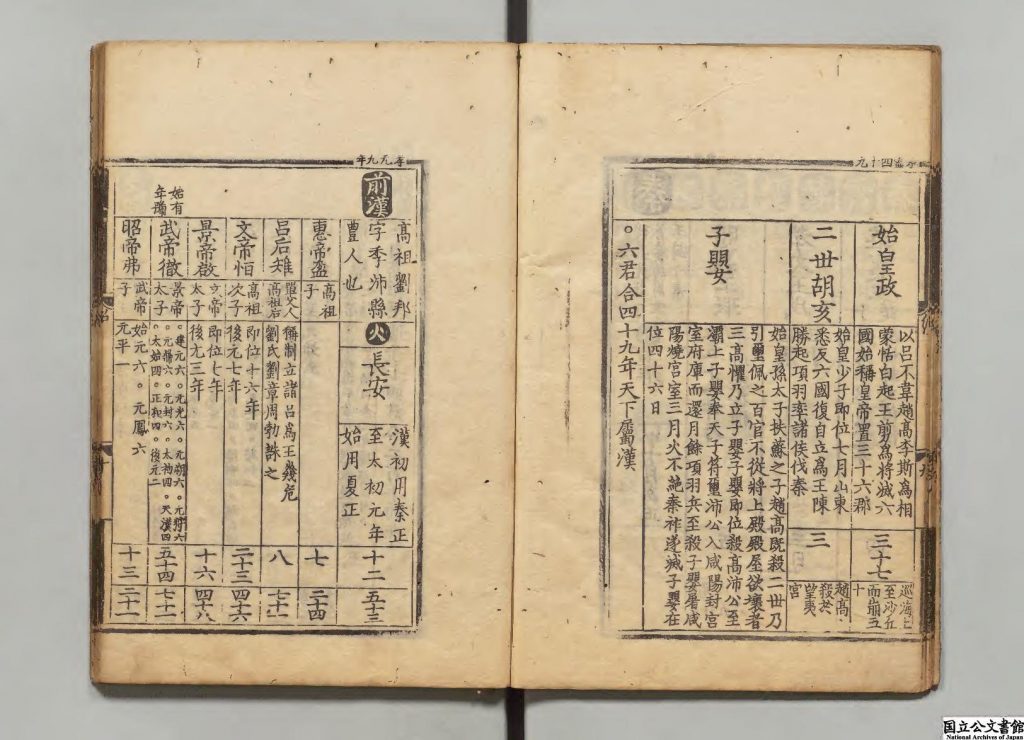 始皇政
以呂不韋趙高李斯為相
蒙恬白起王翦為將滅六
國始稱皇帝置三十六郡
三十七
至沙丘
而崩五
十
二世胡亥
始皇少子即位七月山東
悉反六國復自立為王陳
勝起項羽率諸侯伐秦
三
趙高
殺於
望夷
宮
子嬰
始皇孫太子扶蘇之子趙高既殺二世乃
引璽佩之百官不從將上殿殿屋欲壞者
三高懼乃立子嬰子嬰即位殺高沛公至
灞上子嬰奉天子符璽沛公入咸陽封宮
室府庫而還月餘項羽兵至殺子嬰屠咸
陽燒宮室三月火不絶秦祚遂滅子嬰在
位四十六日
。六君合四十九年天下屬漢
前漢
高祖劉邦
字季沛縣
豊人也
火
長安
漢初用秦正
至太初元年
始用夏正
十二
五十三
惠帝盈
高祖
子
七
二十四
呂后雉
高祖后
稱制立諸呂為王幾危
劉氏劉章周勃誅之
八
文帝恒
高祖
次子
即位十六年
後元七年
二十三
四十六
景帝啟
文帝
太子
即位七年
後九三年
十六
四十八
始有
年號
武帝徹
景帝
太子
。建元六。元光六。元朔六。元狩六
。元鼎六。元封六。太初四。天漢四
。太始四。正和四。後元二
五十四
七十一
昭帝弗
武帝
子
始元六。元鳳六
元平一
十三
二十一
国立公文書館
National Archives of Japan